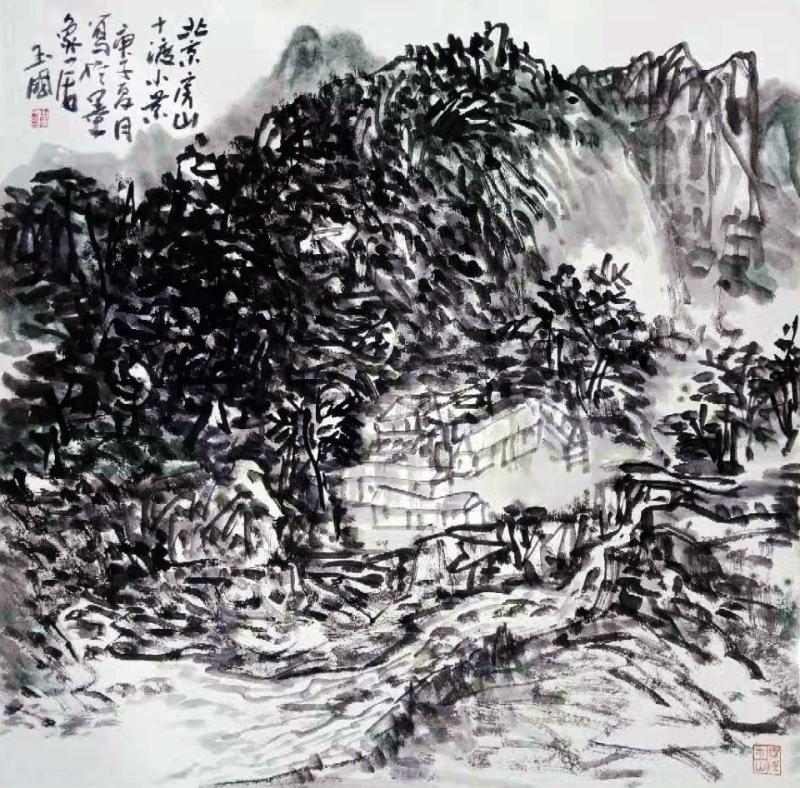 北京房山
十渡小景
庚子夏月
写於墨
象一居
玉國